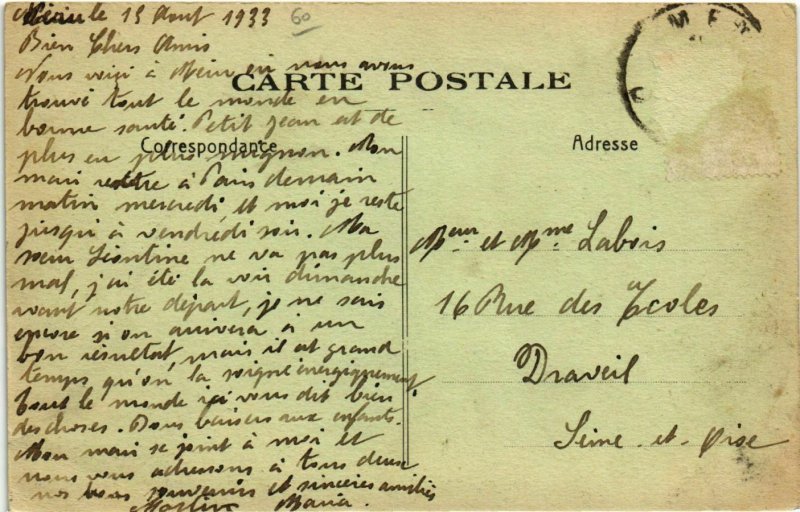 le 15 Aout 1933
60
Bien Chers Amis
Nous voiçi à où nous avons
CARTE POSTALE
trouvé tout le monde en
bonne santé. Petit Jean est de
Correspondance
plus en plus mignon. Mon
mari rentre à Paris demain
matin mercredi, et moi je reste
jusqu'à vendredi soir. Ma
soeur Léontine ne va pas plus
mal, j'ai été la voir dimanche
avant notre départ, je ne sais
encore si on arrivera à un
bon résultat, mais il est grand
temps, qu'on la soigne énergiquement.
Tout le monde ici vous dit bien
des choses. Doux baisers aux enfants.
Mon mari se joint à moi et
nous vous adressons à tous deux
nos bons souvenirs et sincères amitiés
Maria.
Adresse
Meur et Mme Labois
16 Rue des Ecoles
Draveil
Seine-et-Oise